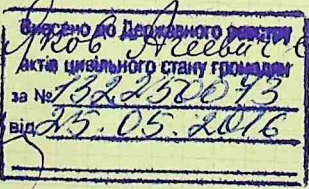 Внесено до Державного реєстру
Яков Агеевич
актів цивільного стану громадян
за № 132250073
від 25.05.2016